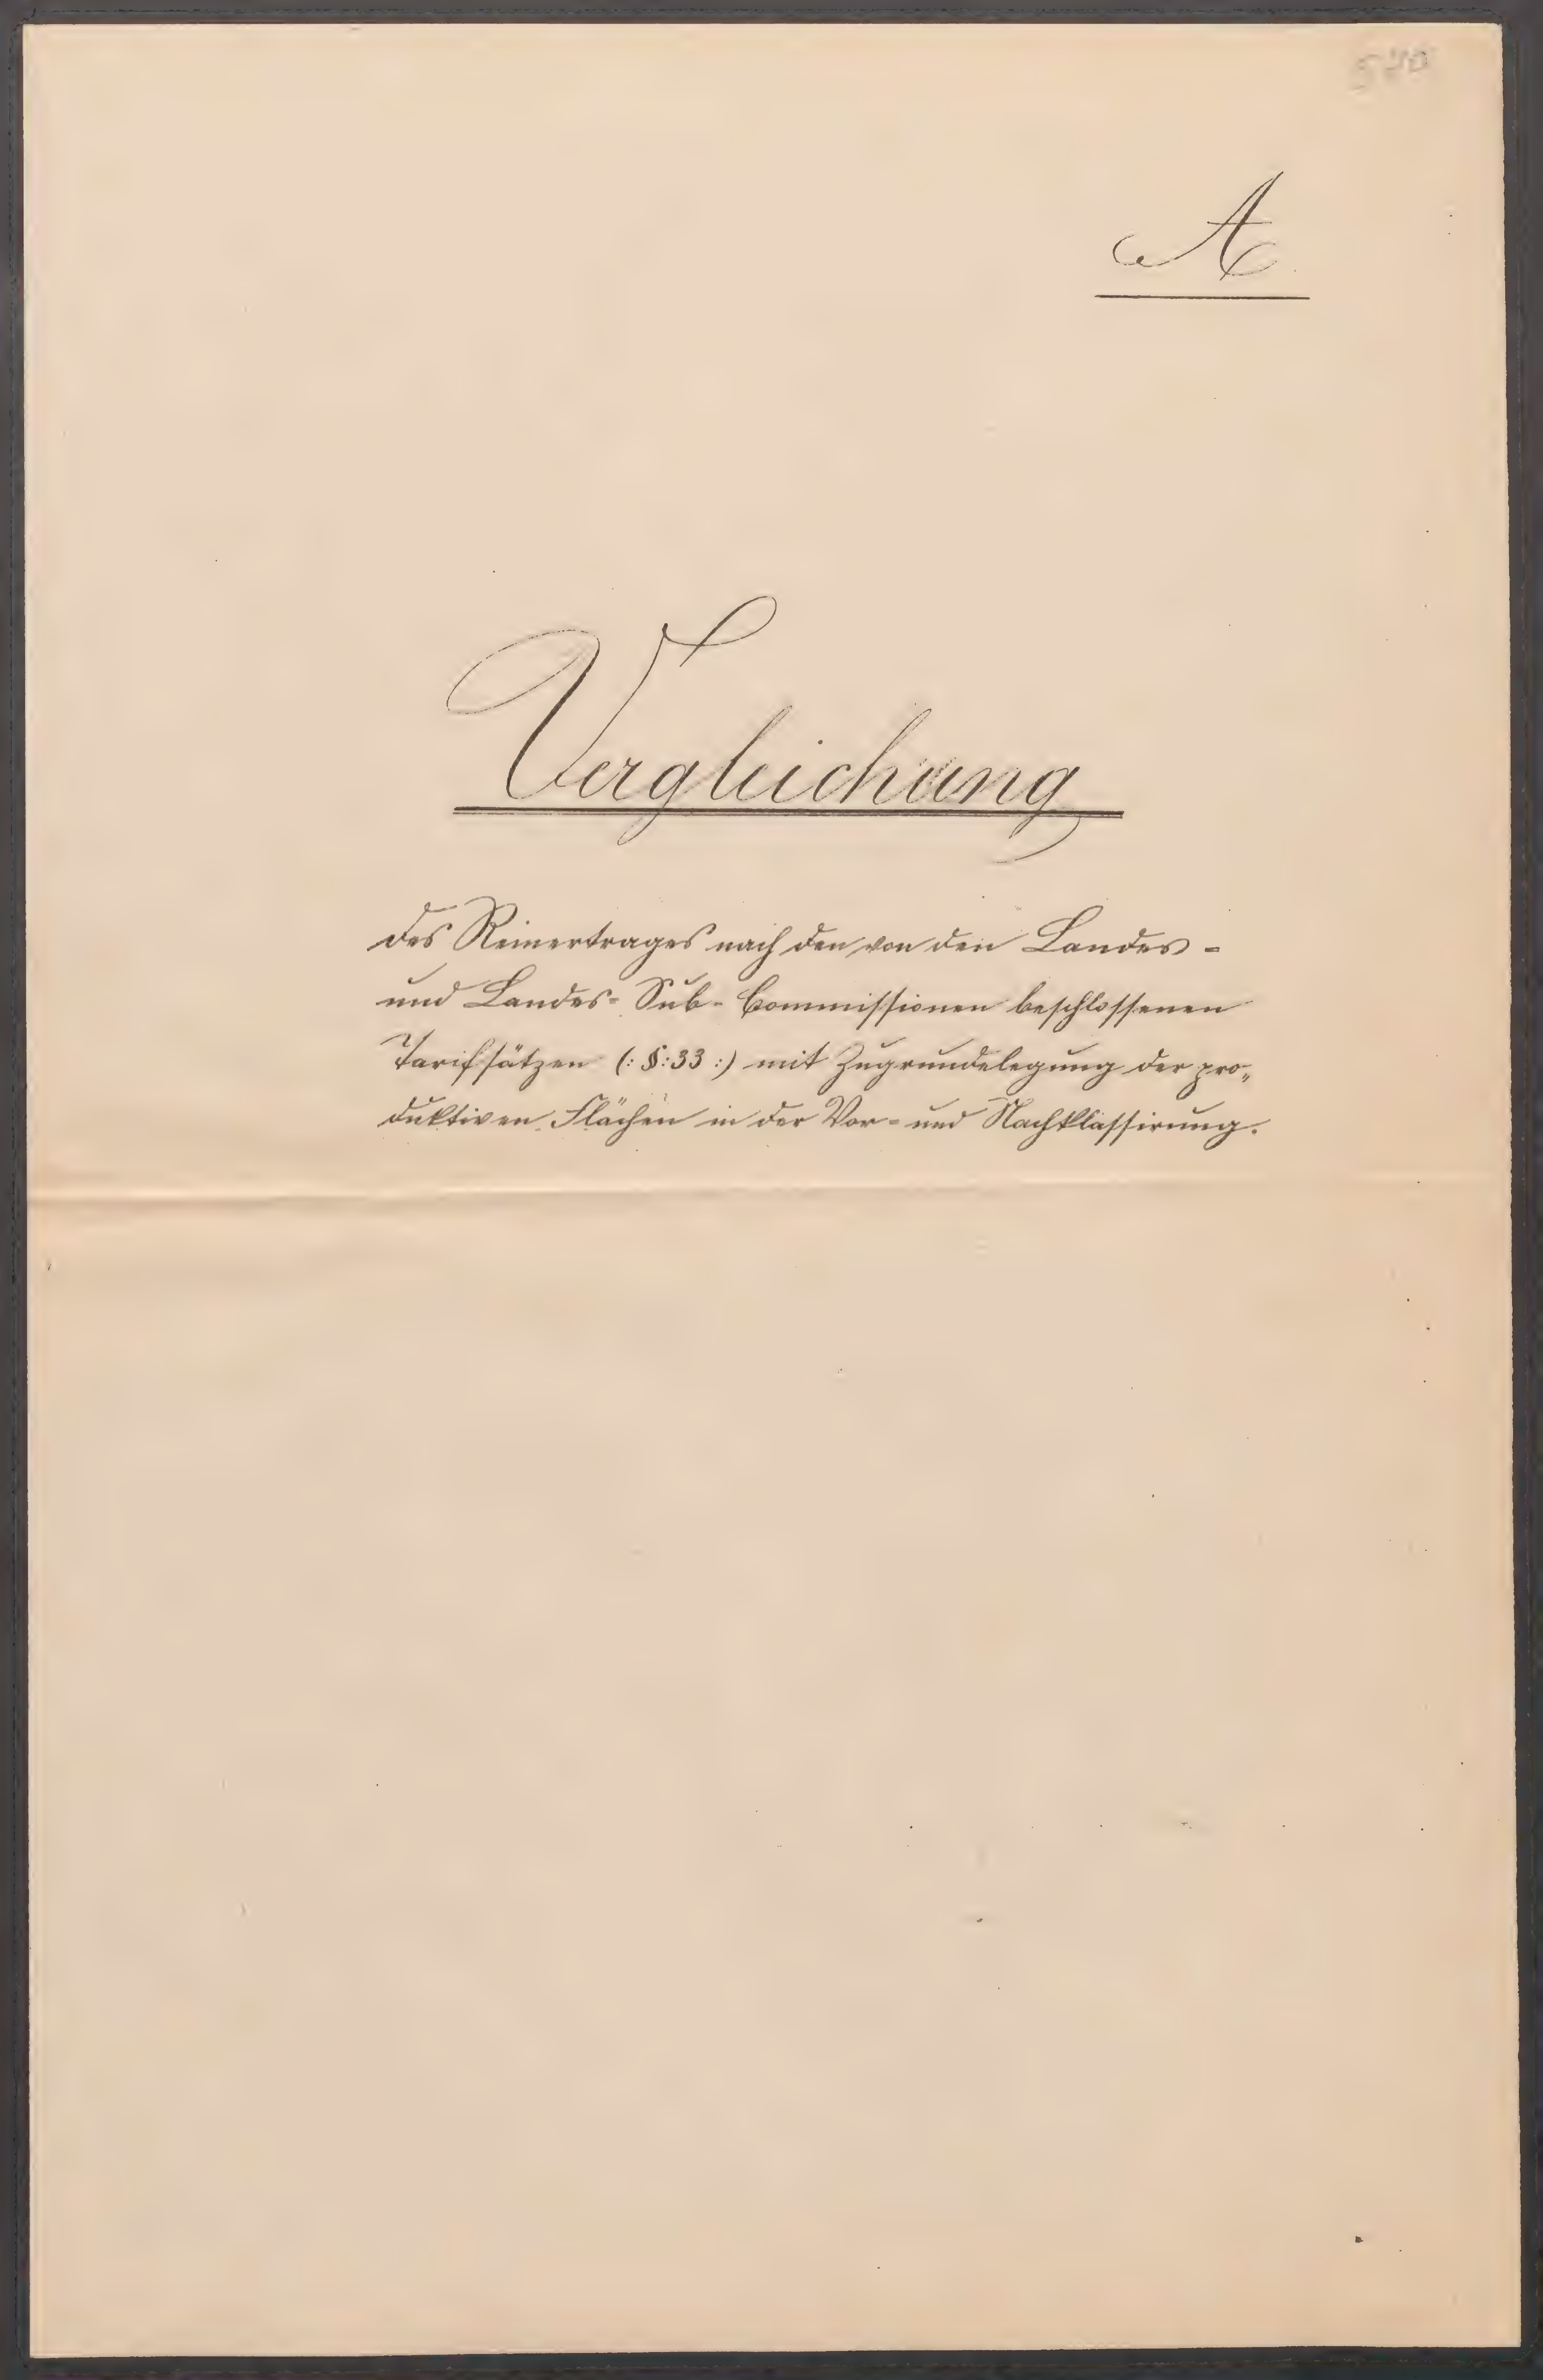 A
Vergleichung
des Reinertrages nach den von den Landes-
und Landes-Sub-Commissionen beschlossenen
Tarifsätzen (: §:33 :) mit Zugrundelegung der pro„
duktiven Flächen in der Vor- und Nachklassirung.